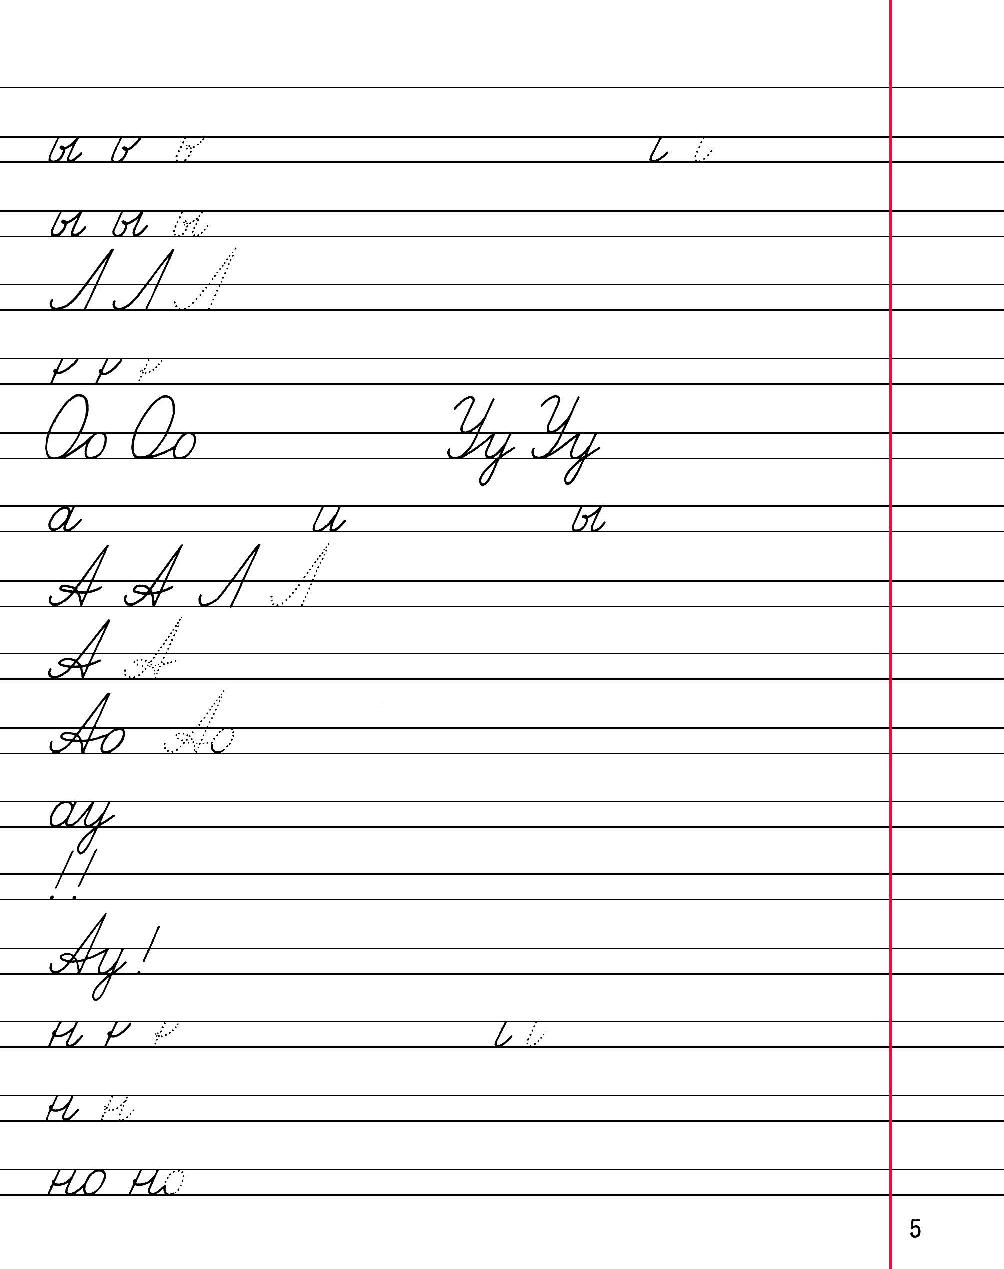 ы ь ь ι ι
ы ы ы
Л Л Л
Оо Оо Уу Уу
а и ы
А А Л Л
А А
Ао Ао
ау
! !
Ау!
н ι ι
н н
но но
5